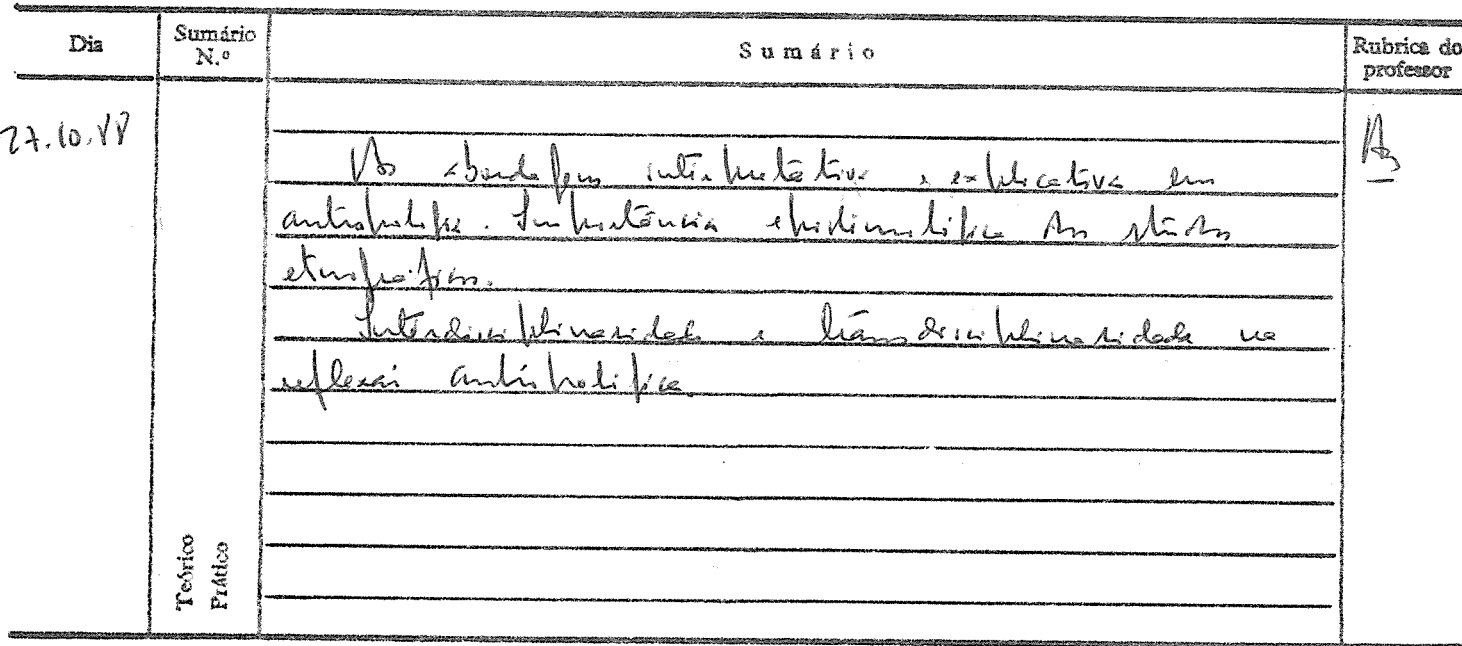 Dia
Sumário N.º
Sumário
Rubrica do professor
27.10.88
As abordagens interpretativa e explicativa em
antropologia. Importância epistemológica dos
etnográficos.
Interdisciplinaridade e transdisciplinaridade na
reflexão antropológica.
Teórico
Prático